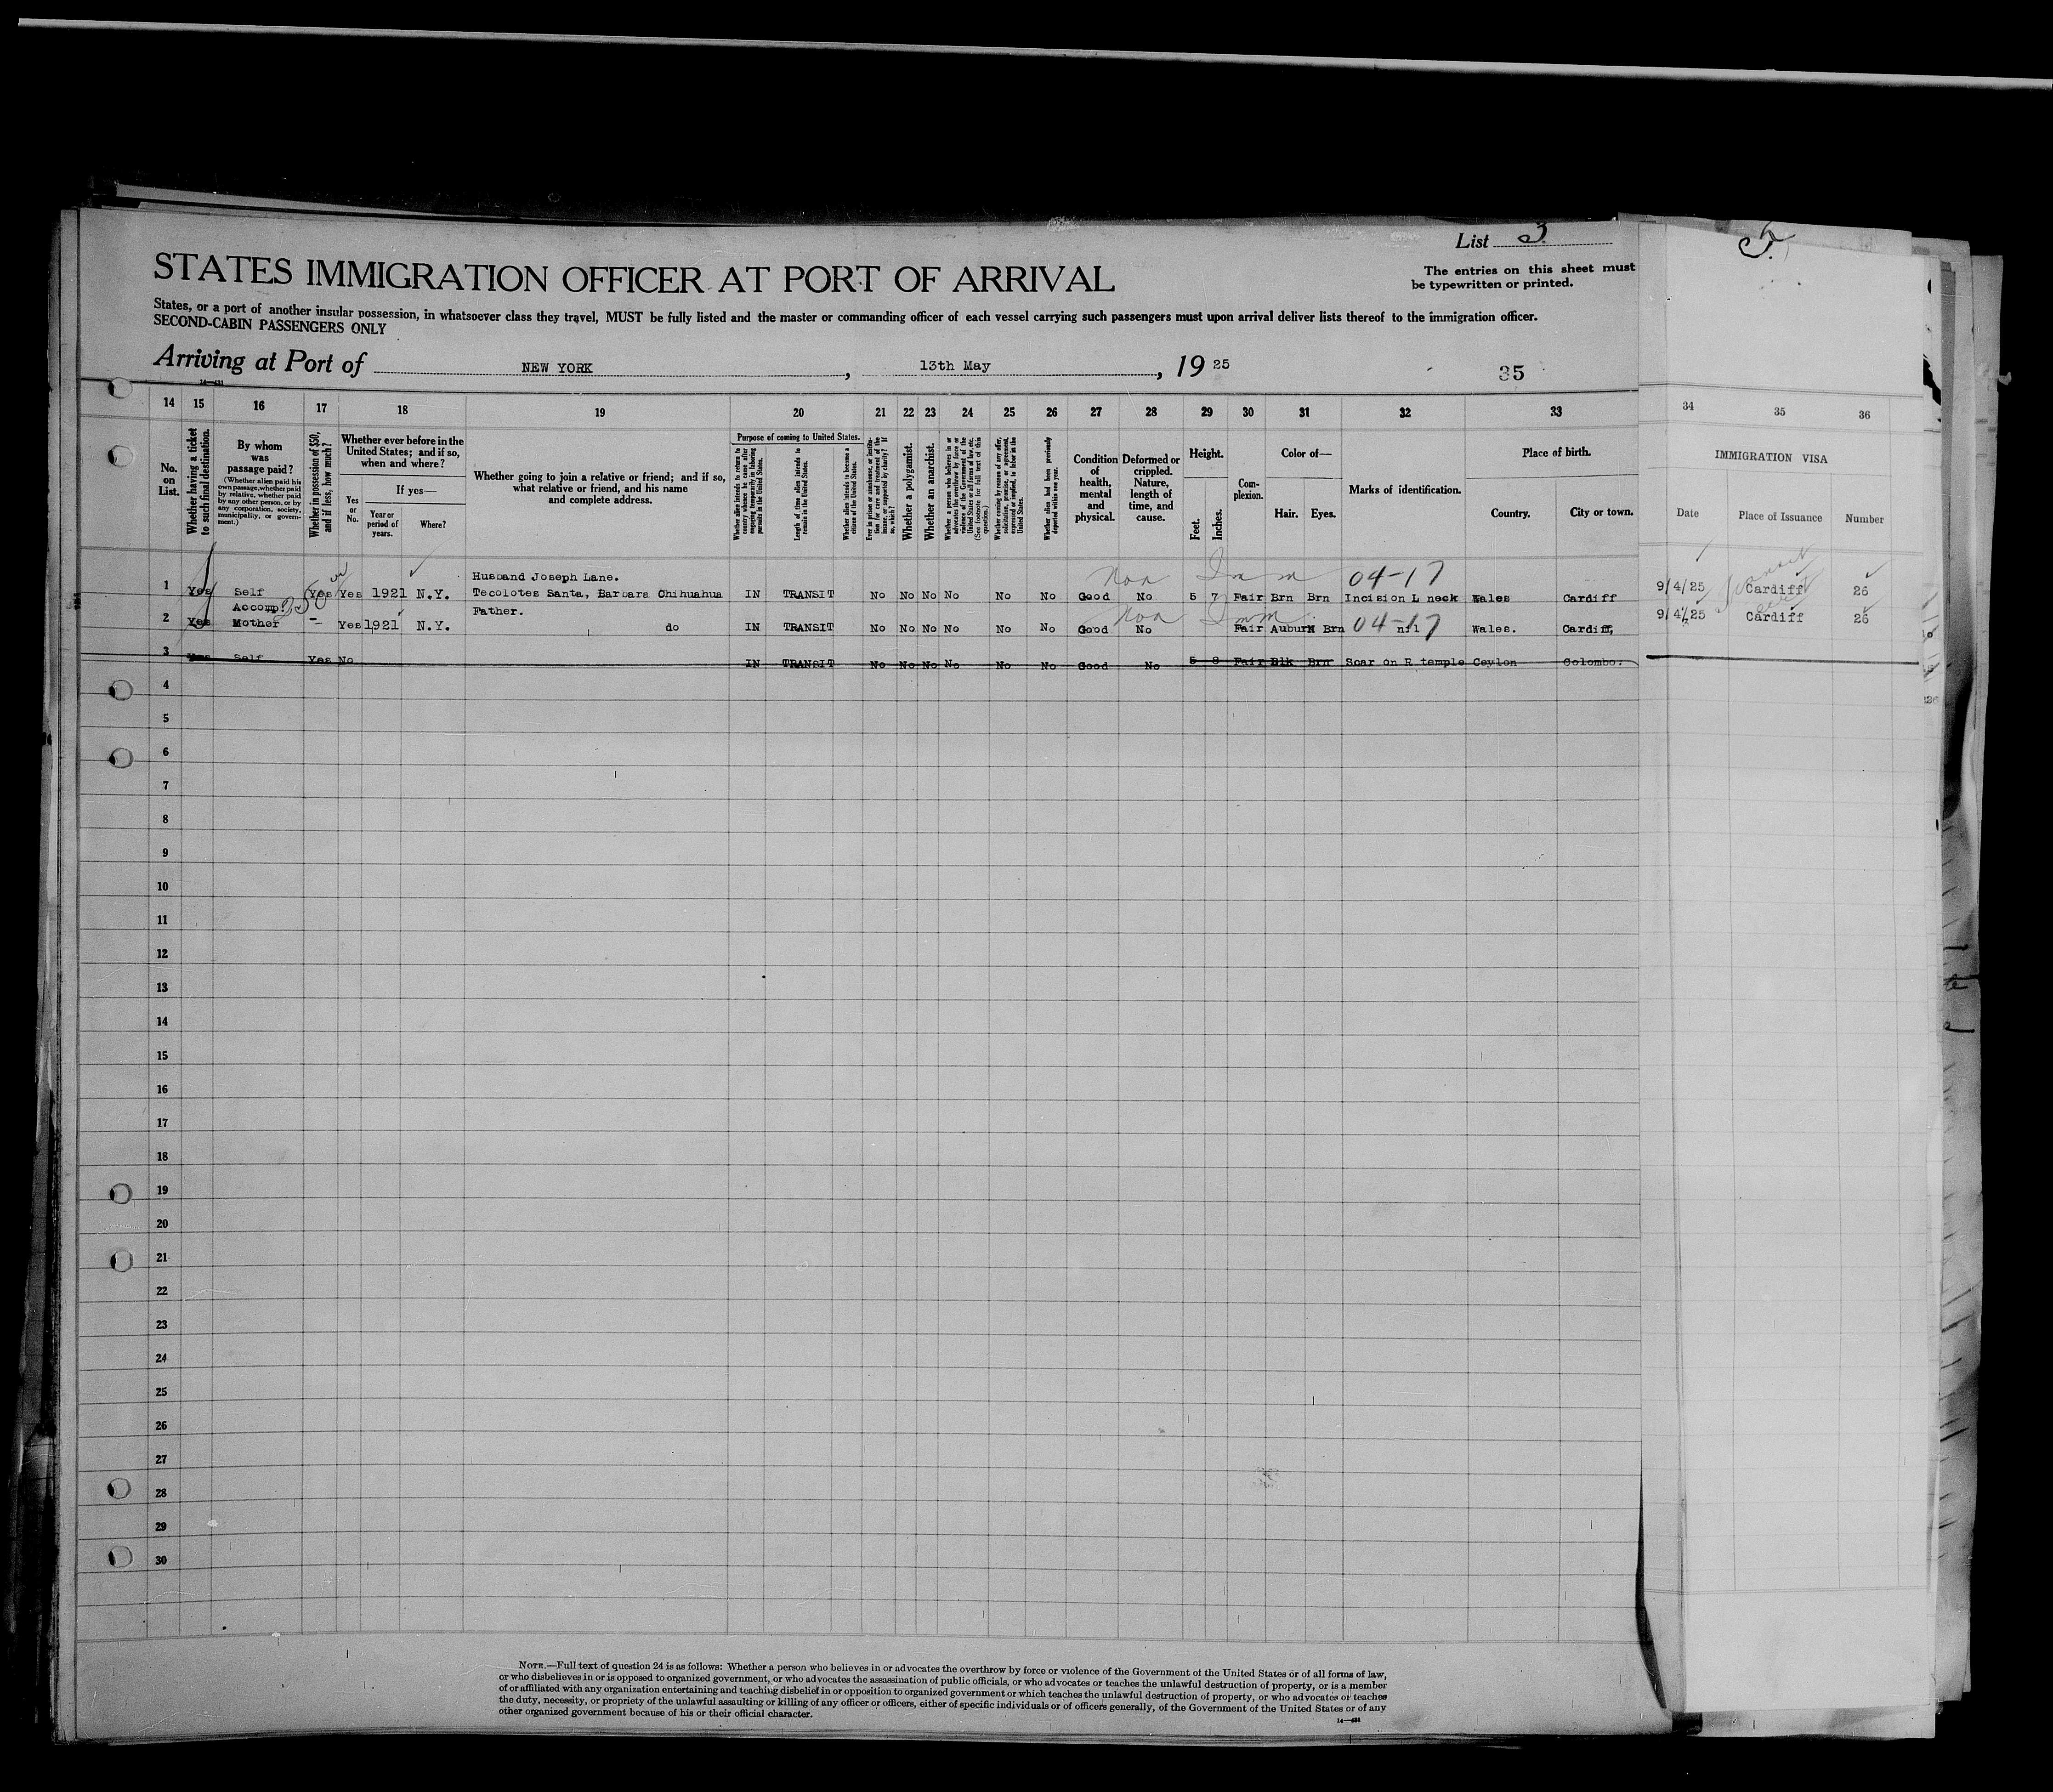 List 3.
5.
STATES IMMIGRATION OFFICER AT PORT OF ARRIVAL
The entries on this sheet must
be typewritten or printed.
States, or a port of another insular possession, in whatsoever class they travel, MUST be fully listed and the master or commanding officer of each vessel carrying such passengers must upon arrival deliver lists thereof to the immigration officer.
SECOND-CABIN PASSENGERS ONLY
Arriving at Port of NEW YORK, 13th May, 19 25
35
14—431
14 15 16 17 18 19 20 21 22 23 24 25 26 27 28 29 30 31 32 33 34 35 36
No. on List.
Whether having a ticket to such final destination.
By whom was passage paid?
(Whether alien paid his own passage, whether paid by relative, whether paid by any other person, or by any corporation, society, municipality, or government.)
Whether in possession of $50, and if less, how much?
Whether ever before in the United States; and if so, when and where?
Yes or No.
If yes—
Year or period of years.
Where?
Whether going to join a relative or friend; and if so, what relative or friend, and his name and complete address.
Purpose of coming to United States.
Whether alien intends to return to country whence he came after engaging temporarily in laboring pursuits in the United States.
Length of time alien intends to remain in the United States.
Whether alien intends to become a citizen of the United States.
Ever in prison or almshouse, or institution for care and treatment of the insane, or supported by charity? If so, which?
Whether a polygamist.
Whether an anarchist.
Whether a person who believes in or advocates the overthrow by force or violence of the Government of the United States or all forms of law, etc. (See footnote for full text of this question.)
Whether coming by reason of any offer, solicitation, promise, or agreement, expressed or implied, to labor in the United States.
Whether alien had been previously deported within one year.
Condition of health, mental and physical.
Deformed or crippled. Nature, length of time, and cause.
Height.
Feet.
Inches.
Complexion.
Color of—
Hair.
Eyes.
Marks of identification.
Place of birth.
Country.
City or town.
IMMIGRATION VISA
Date
Place of Issuance
Number
Non Imm 04-17
Husband Joseph Lane.
1 Yes Self Yes Yes 1921 N.Y. Tecolotes Santa, Barbara Chihuahua IN TRANSIT No No No No No No Good No 5 7 Fair Brn Brn Incision L neck Wales Cardiff 9/4/25 Cardiff 26
250
Accomp. Father. Non Imm 04-17
2 Yes Mother — Yes 1921 N.Y. do IN TRANSIT No No No No No No Good No Fair Auburn Brn nil Wales. Cardiff, 9/4/25 Cardiff 26
3 Yes Self Yes No IN TRANSIT No No No No No No Good No 5 8 Fair Blk Brn Scar on R temple Ceylon Colombo.
4
5
6
7
8
9
10
11
12
13
14
15
16
17
18
19
20
21
22
23
24
25
26
27
28
29
30
NOTE.—Full text of question 24 is as follows: Whether a person who believes in or advocates the overthrow by force or violence of the Government of the United States or of all forms of law,
or who disbelieves in or is opposed to organized government, or who advocates the assassination of public officials, or who advocates or teaches the unlawful destruction of property, or is a member
of or affiliated with any organization entertaining and teaching disbelief in or opposition to organized government or which teaches the unlawful destruction of property, or who advocates or teaches
the duty, necessity, or propriety of the unlawful assaulting or killing of any officer or officers, either of specific individuals or of officers generally, of the Government of the United States or of any
other organized government because of his or their official character.
14—431